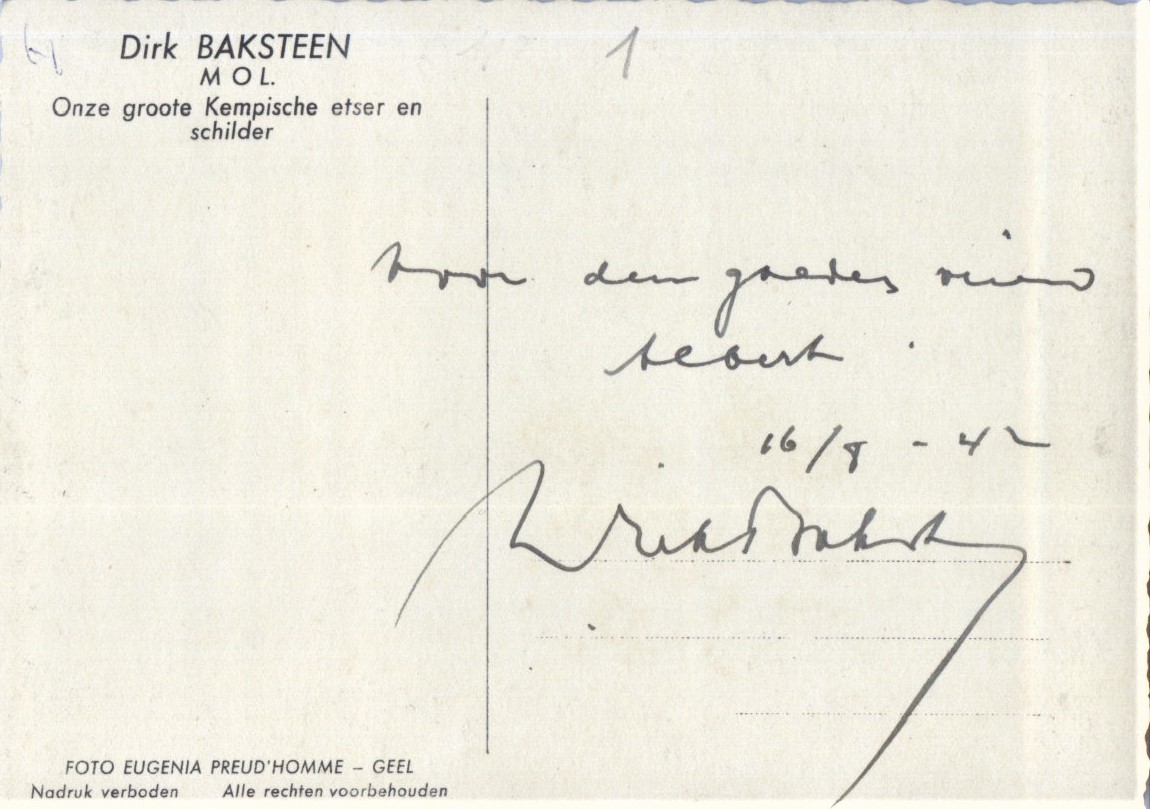 Dirk BAKSTEEN
MOL.
Onze groote Kempische etser en
schilder
1
Voor den goeden vriend
Albert.
16/8 - 42
Dirk Baksteen
FOTO EUGENIA PREUD'HOMME – GEEL
Nadruk verboden Alle rechten voorbehouden